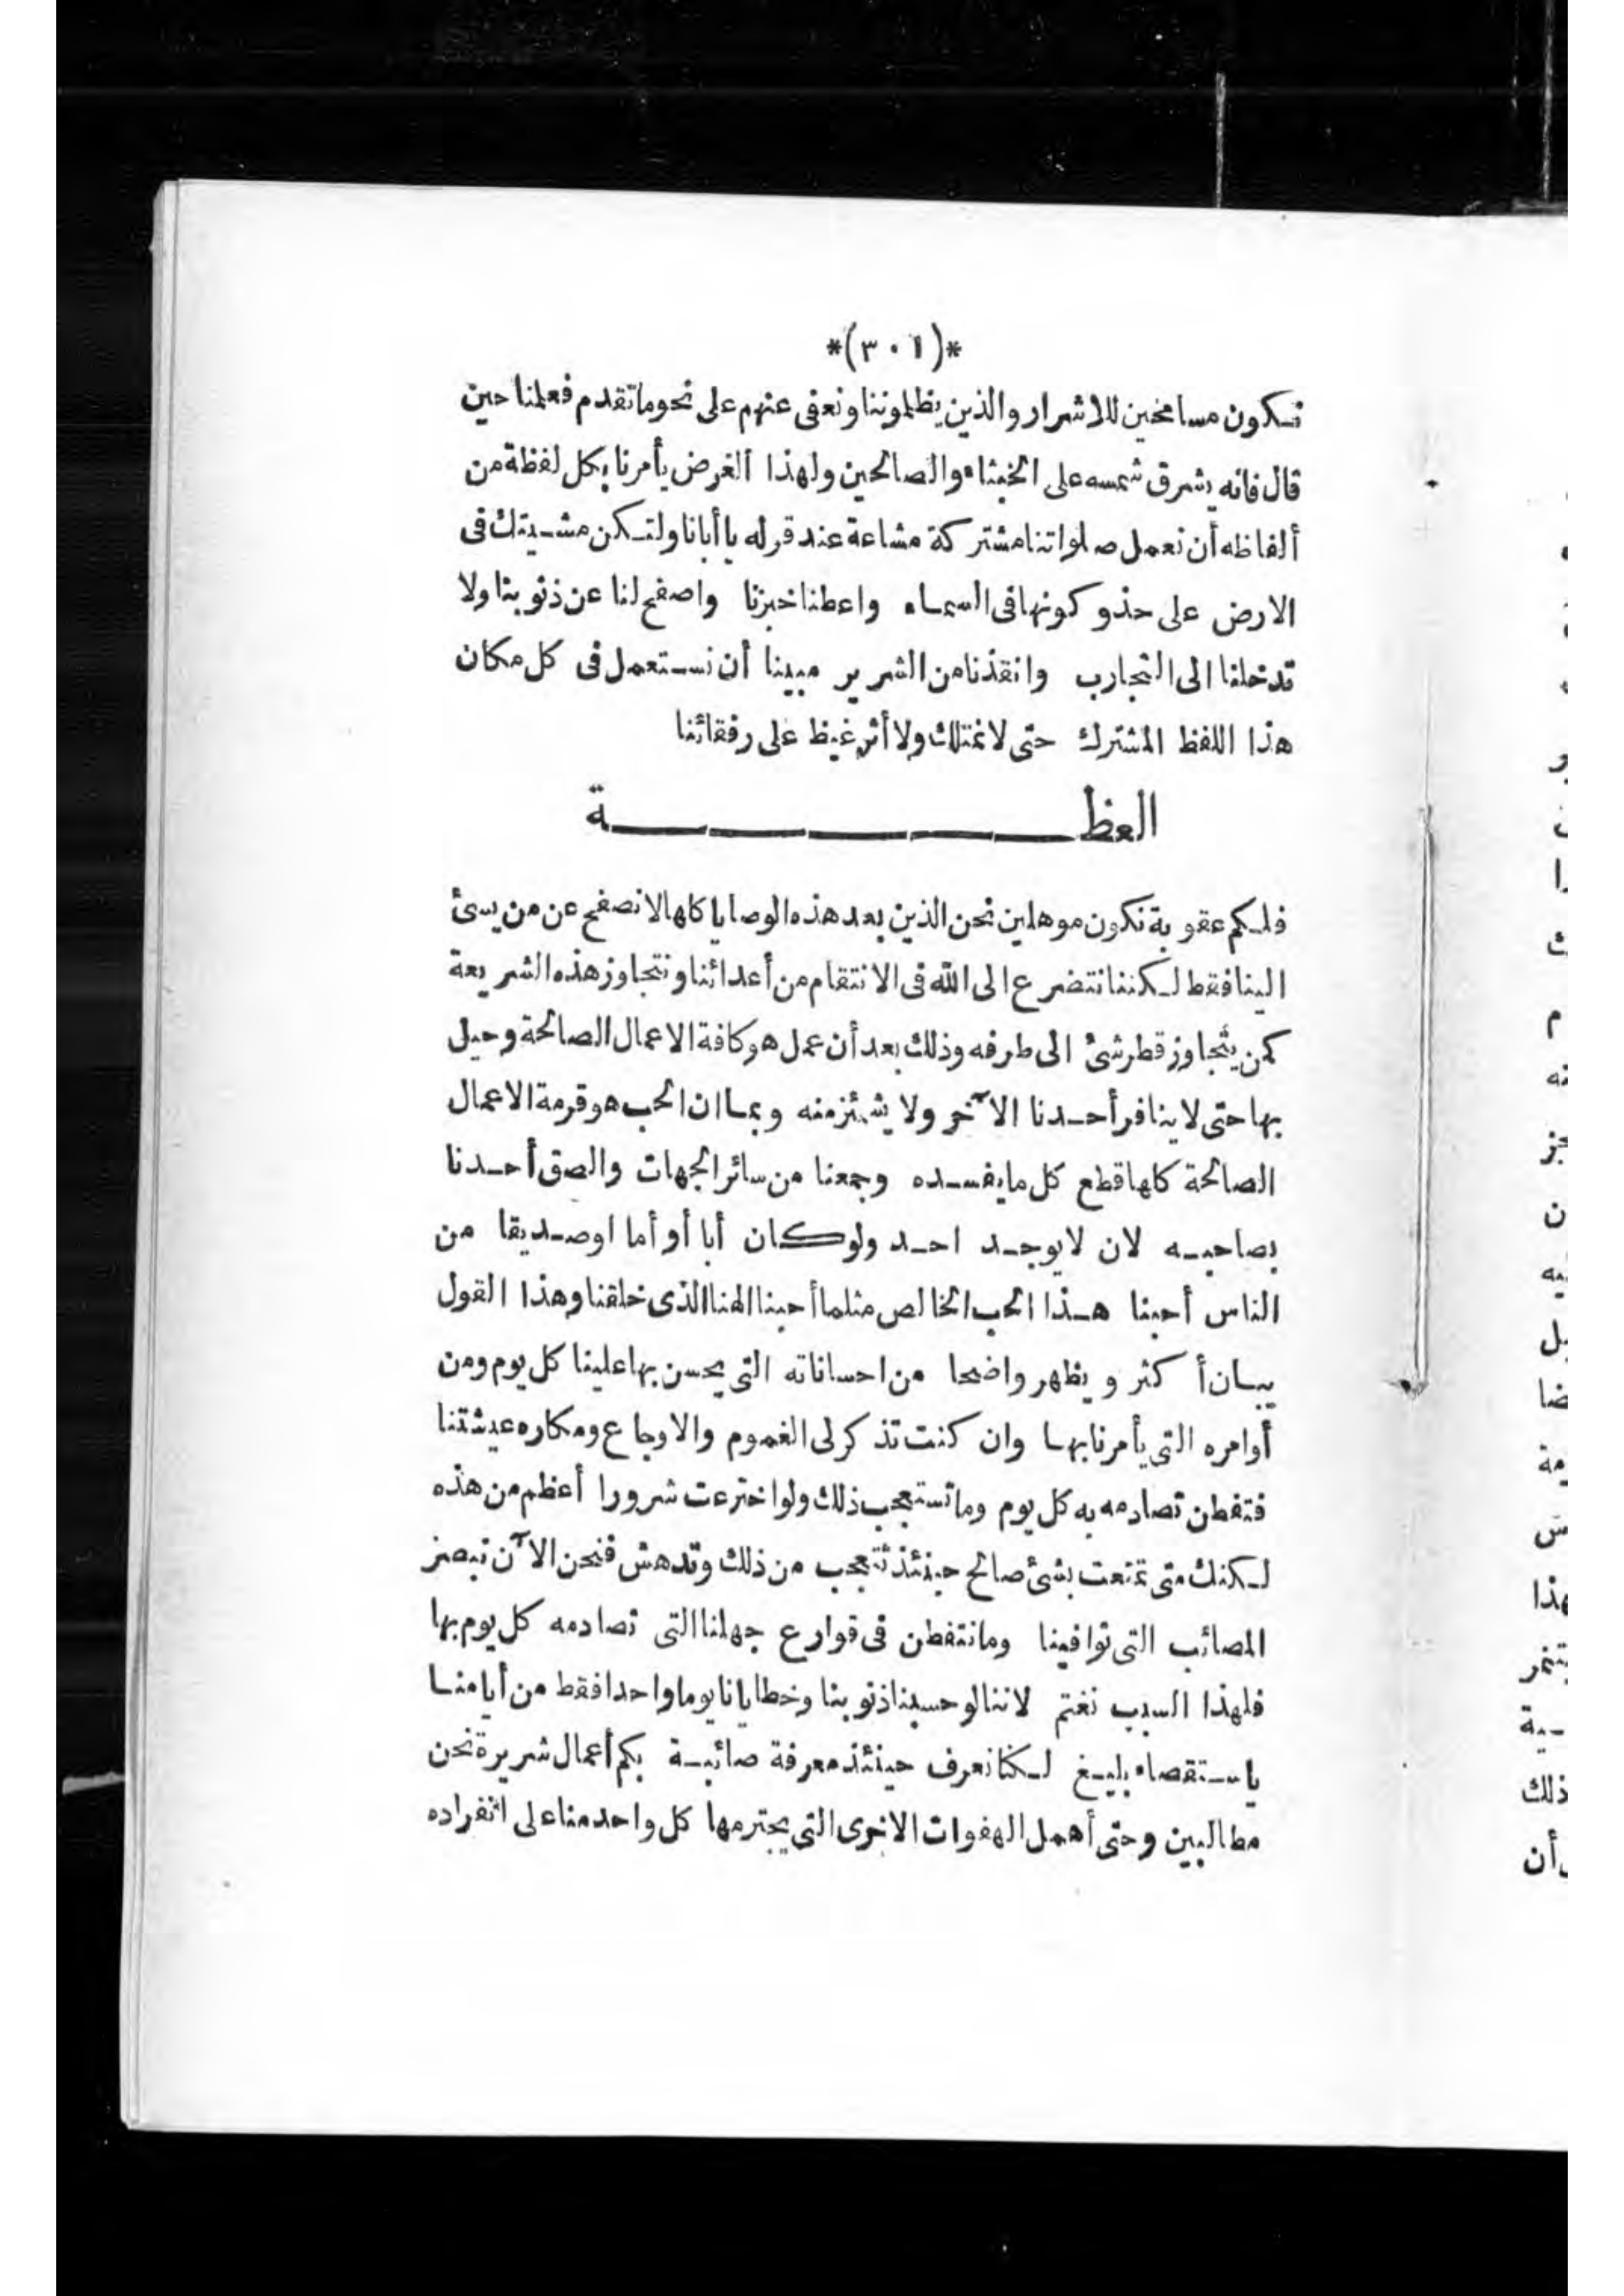 *(٣٠١)*
نكون مسامحين للاشرار والذين يظلموننا ونعفى عنهم على نحو ما تقدم فعلمنا حين
قال فانه يشرق شمسه على الخبثاء والصالحين ولهذا الغرض يأمرنا بكل لفظة من
ألفاظه أن نعمل صلواتنا مشتركة مشاعة عند قوله يا أبانا ولتكن مشيتك فى
الارض على حذو كونها فى السماء واعطنا خبزنا واصفح لنا عن ذنوبنا ولا
تدخلنا الى التجارب وانقذنا من الشرير مبينا أن نستعمل فى كل مكان
هذا اللفظ المشترك حتى لا نمتلك ولا أثر غيظ على رفقائنا
العظة
فلكم عقوبة نكون موهلين نحن الذين بعد هذه الوصايا كلها لا نصفح عن من يسئ
الينا فقط لكننا نتضرع الى الله فى الانتقام من أعدائنا ونتجاوز هذه الشريعة
كمن يتجاوز قطر شئ الى طرفه وذلك بعد أن عمل هو كافة الاعمال الصالحة وحيل
بها حتى لا ينافر أحدنا الآخر ولا يشمئز منه وبما ان الحب هو قرمة الاعمال
الصالحة كلها قطع كل ما يفسده وجمعنا من سائر الجهات والصق أحدنا
بصاحبه لان لا يوجد احد ولو كان أبا أو أما اوصديقا من
الناس أحبنا هذا الحب الخالص مثلما أحبنا الهنا الذى خلقنا وهذا القول
يبان أكثر ويظهر واضحا من احساناته التى يحسن بها علينا كل يوم ومن
أوامره التى يأمرنا بها وان كنت تذكر لى الغموم والاوجاع ومكاره عيشتنا
فتفطن تصادمه به كل يوم وما تستعجب ذلك ولو اخترعت شرورا أعظم من هذه
لكنك متى تمتعت بشئ صالح حينئذ تتعجب من ذلك وتدهش فنحن الآن نبصر
المصائب التى توافينا وما نتفطن فى قوارع جهلنا التى تصادمه كل يوم بها
فلهذا السبب نغتم لاننا لو حسبنا ذنوبنا وخطايانا يوما واحدا فقط من أيامنا
باستقصاء بليغ لكنا نعرف حينئذ معرفة صائبة بكم أعمال شريرة نحن
مطالبين وحتى أهمل الهفوات الاخرى التى يجترمها كل واحد منا على انفراده